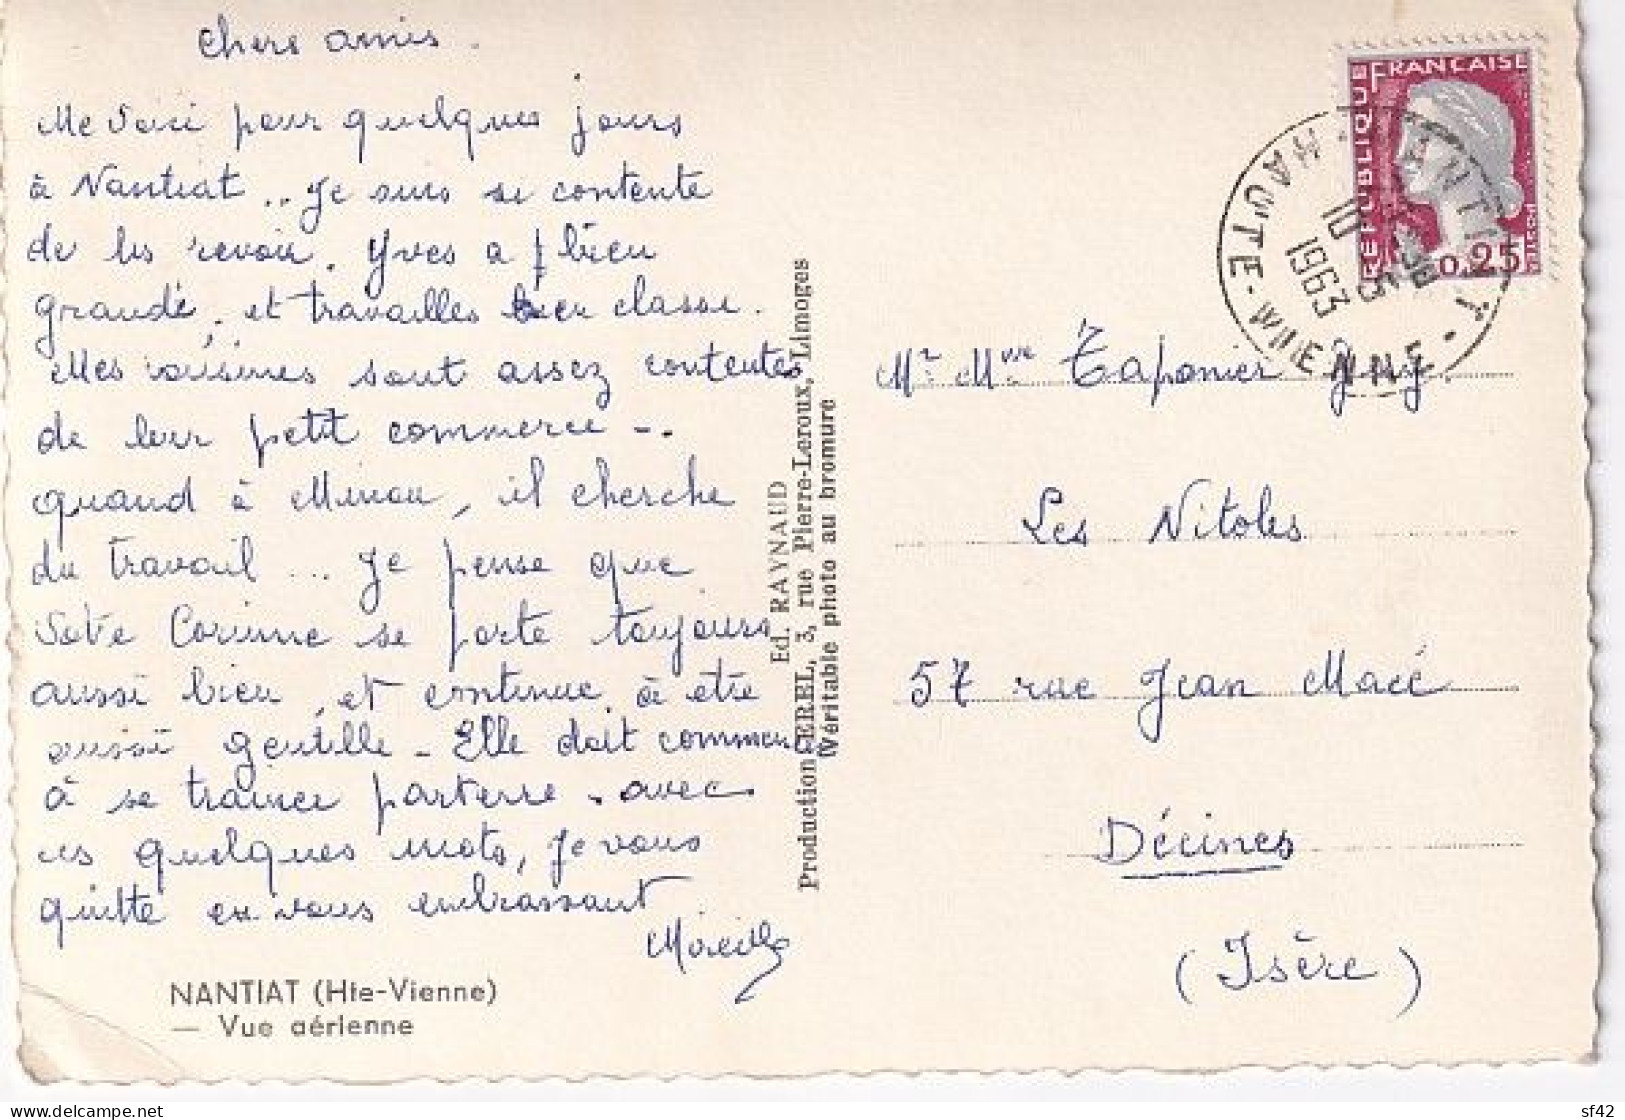 Chers amis.
Me voici pour quelques jours
à Nantiat .. Je suis si contente
de les revoir. Yves a bien
grandi, et travailles bien classe.
Mes voisines sont assez contentes
de leur petit commerce -.
quand à Minou, il cherche
du travail ... Je pense que
Votre Corinne se porte toujours
aussi bien, et continue à etre
aussi gentille - Elle doit commencer
à se trainer parterre - avec
ces quelques mots, je vous
quitte en vous embrassant
Mireille
NANTIAT (Hte-Vienne)
— Vue aérienne
Ed. RAYNAUD
Production SEREL, 3, rue Pierre-Leroux, Limoges
(Véritable photo au bromure
REPUBLIQUE FRANÇAISE
0,25
DECARIS
NANTIAT
HAUTE-VIENNE
1963
Mr Mme Taponier
Les Nitoles
57 rue Jean Macé
Décines
(Isère)
sf42